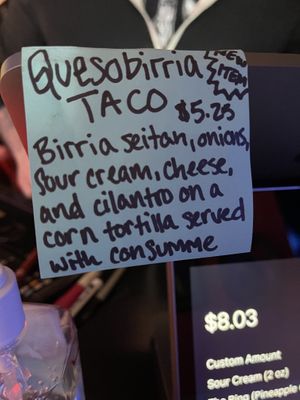 Quesobirria
NEW
ITEM
TACO $5.25
Birria seitan, onions,
Sour cream, cheese,
and cilantro on a
corn tortilla served
with consumme
$8.03
Custom Amount
Sour Cream (2 oz)
The Ring (Pineapple